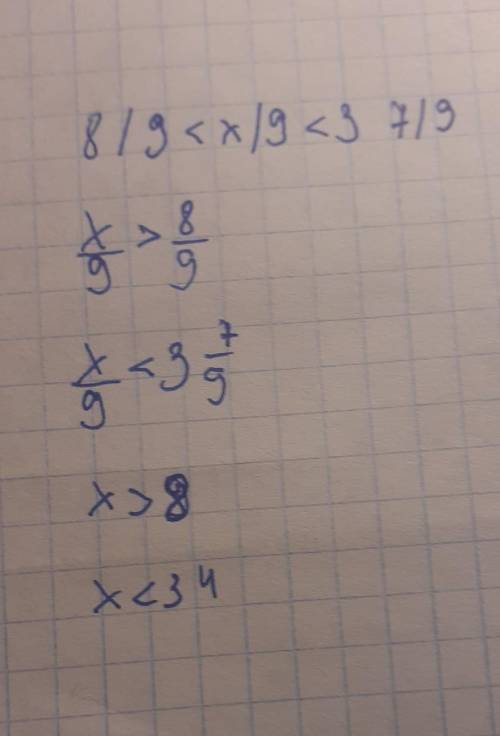 8/9 < x/9 < 3 7/9
x/9 > 8/9
x/9 < 3 7/9
x > 8
x < 34